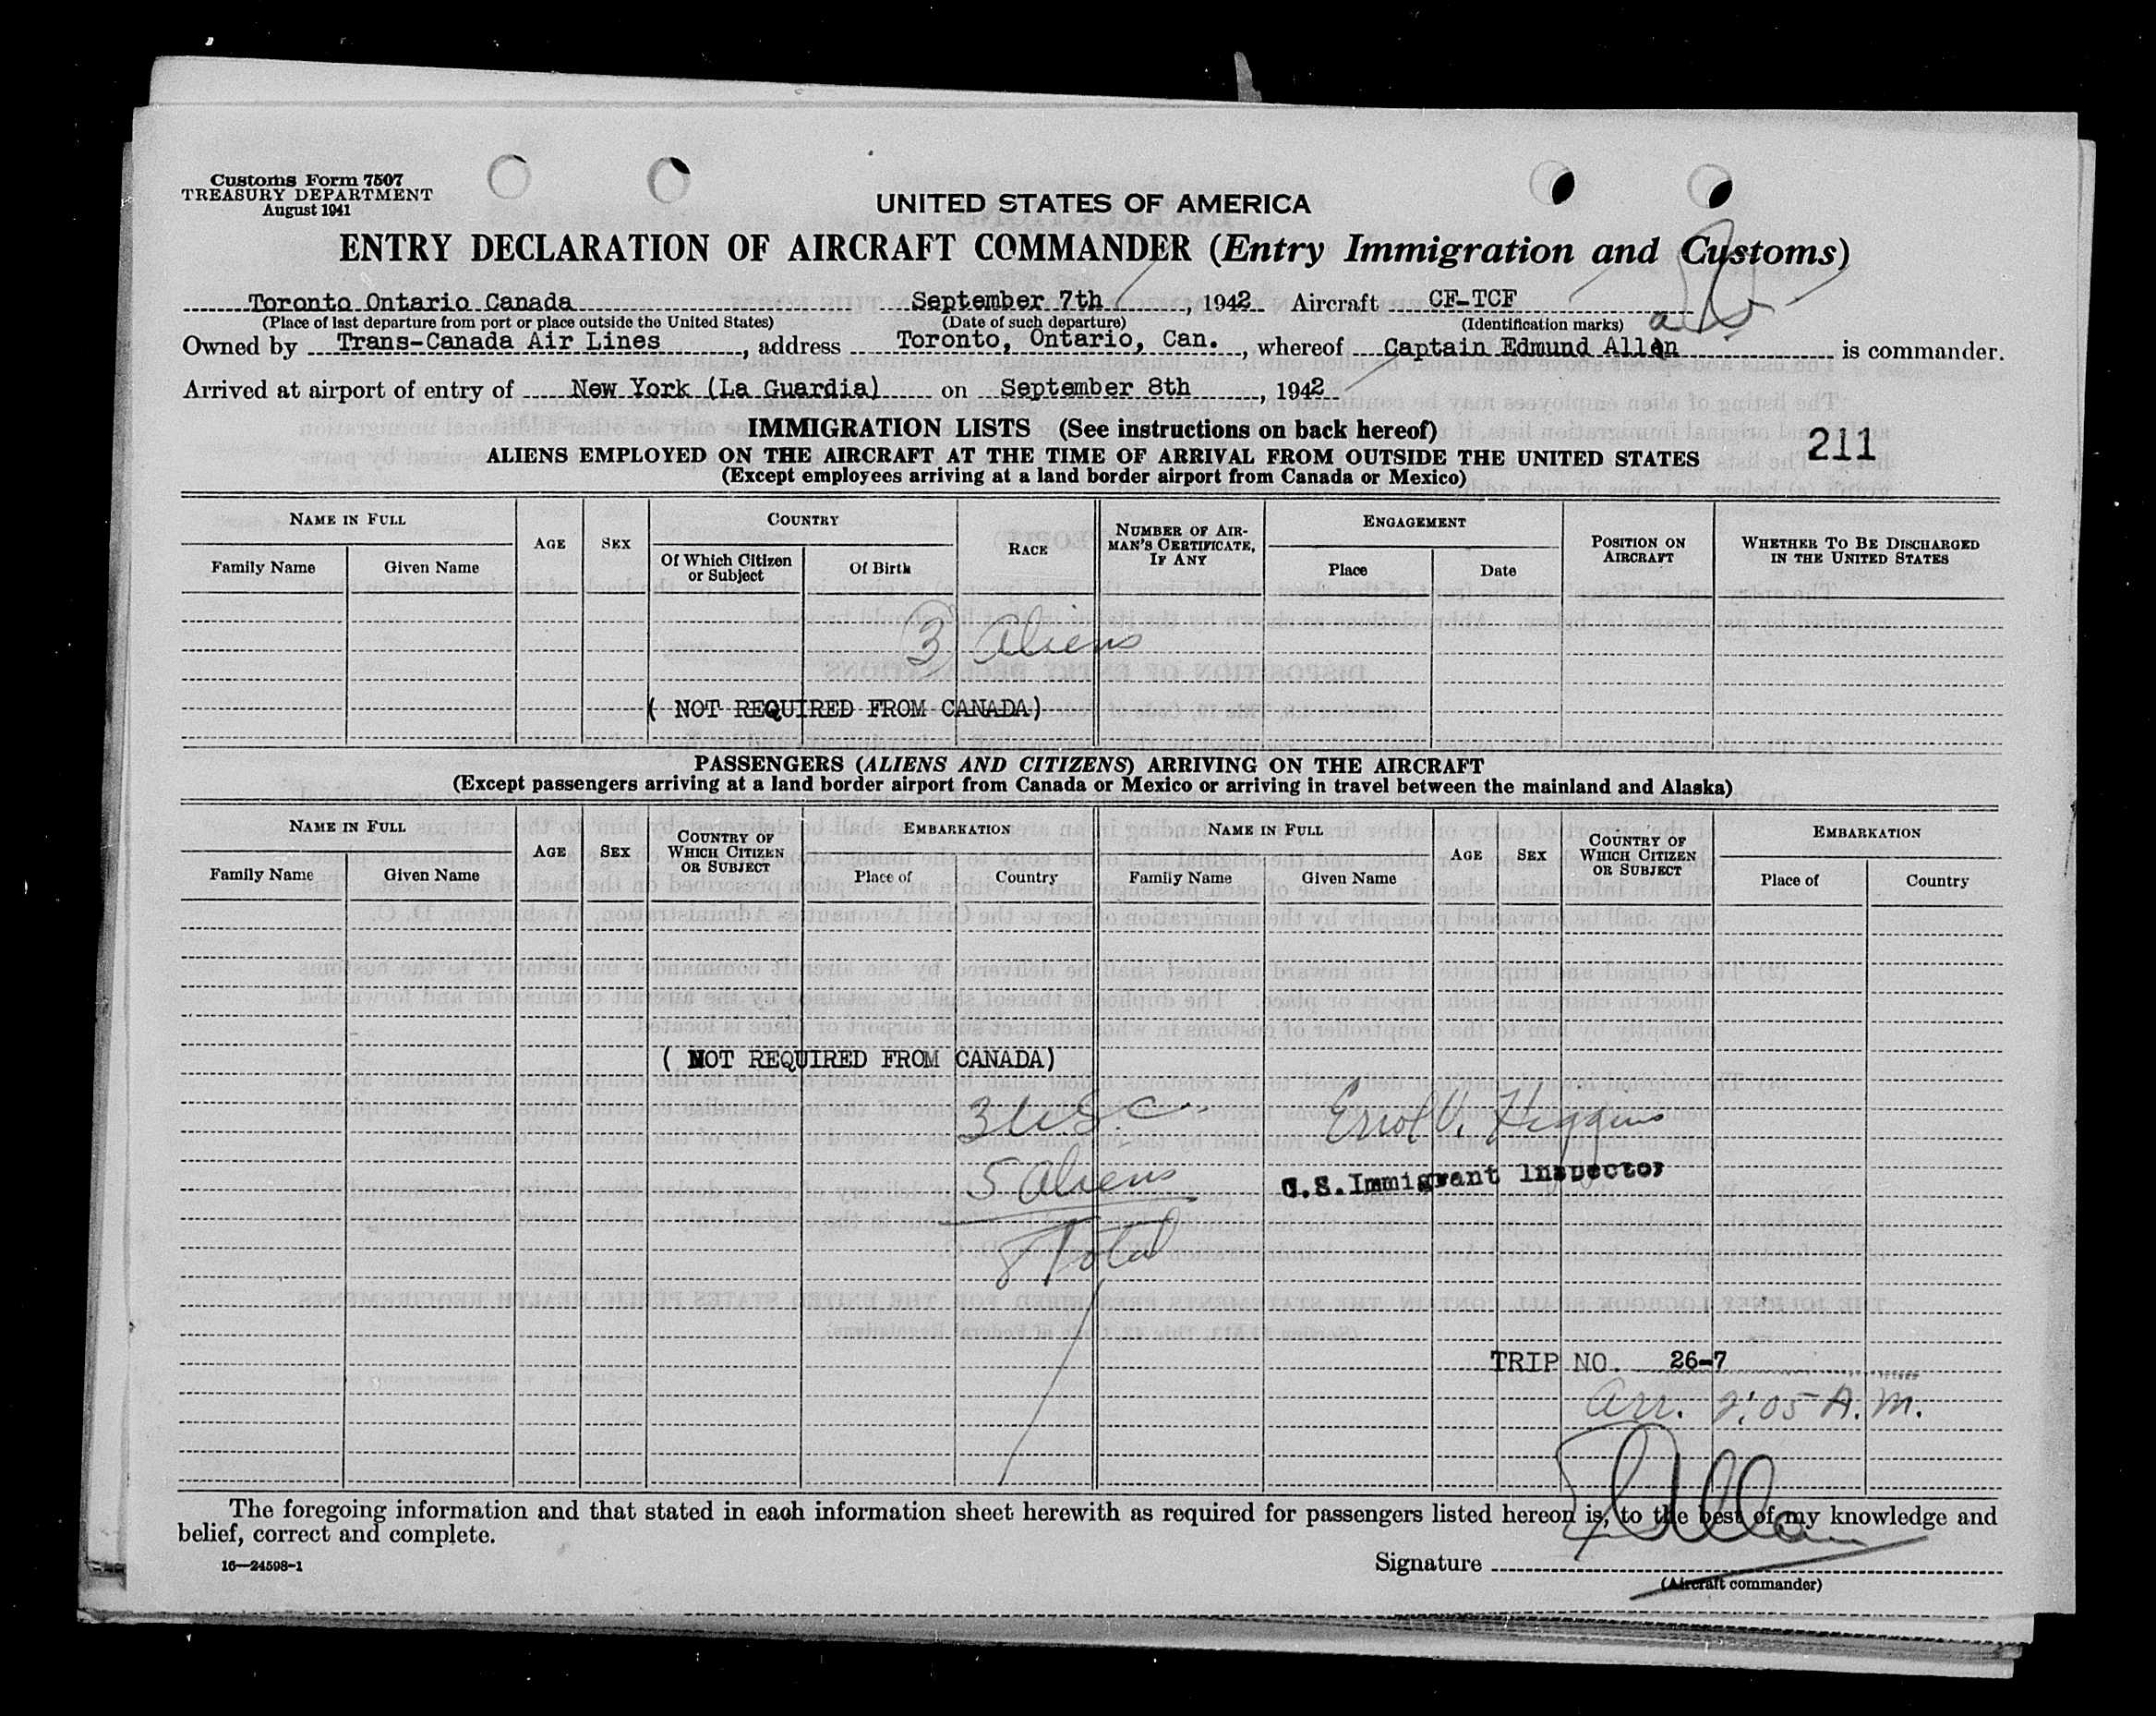 Customs Form 7507
TREASURY DEPARTMENT
August 1941
UNITED STATES OF AMERICA
ENTRY DECLARATION OF AIRCRAFT COMMANDER (Entry Immigration and Customs)
Toronto Ontario Canada September 7th, 1942 Aircraft CF-TCF
(Place of last departure from port or place outside the United States) (Date of such departure) (Identification marks)
Owned by Trans-Canada Air Lines, address Toronto, Ontario, Can., whereof Captain Edmund Allen is commander.
Arrived at airport of entry of New York (La Guardia) on September 8th, 1942
IMMIGRATION LISTS (See instructions on back hereof)
211
ALIENS EMPLOYED ON THE AIRCRAFT AT THE TIME OF ARRIVAL FROM OUTSIDE THE UNITED STATES
(Except employees arriving at a land border airport from Canada or Mexico)
NAME IN FULL AGE SEX COUNTRY RACE NUMBER OF AIRMAN'S CERTIFICATE, IF ANY ENGAGEMENT POSITION ON AIRCRAFT WHETHER TO BE DISCHARGED IN THE UNITED STATES
Family Name Given Name Of Which Citizen or Subject Of Birth Place Date
3 Aliens
( NOT REQUIRED FROM CANADA)
PASSENGERS (ALIENS AND CITIZENS) ARRIVING ON THE AIRCRAFT
(Except passengers arriving at a land border airport from Canada or Mexico or arriving in travel between the mainland and Alaska)
NAME IN FULL AGE SEX COUNTRY OF WHICH CITIZEN OR SUBJECT EMBARKATION NAME IN FULL AGE SEX COUNTRY OF WHICH CITIZEN OR SUBJECT EMBARKATION
Family Name Given Name Place of Country Family Name Given Name Place of Country
( NOT REQUIRED FROM CANADA)
3 U.S.C. Errol V. Higgins
5 Aliens U.S. Immigrant Inspector
8 Total
TRIP NO. 26-7
Arr. 2:05 A.M.
The foregoing information and that stated in each information sheet herewith as required for passengers listed hereon is, to the best of my knowledge and
belief, correct and complete.
16—24598-1
Signature E Allan
(Aircraft commander)